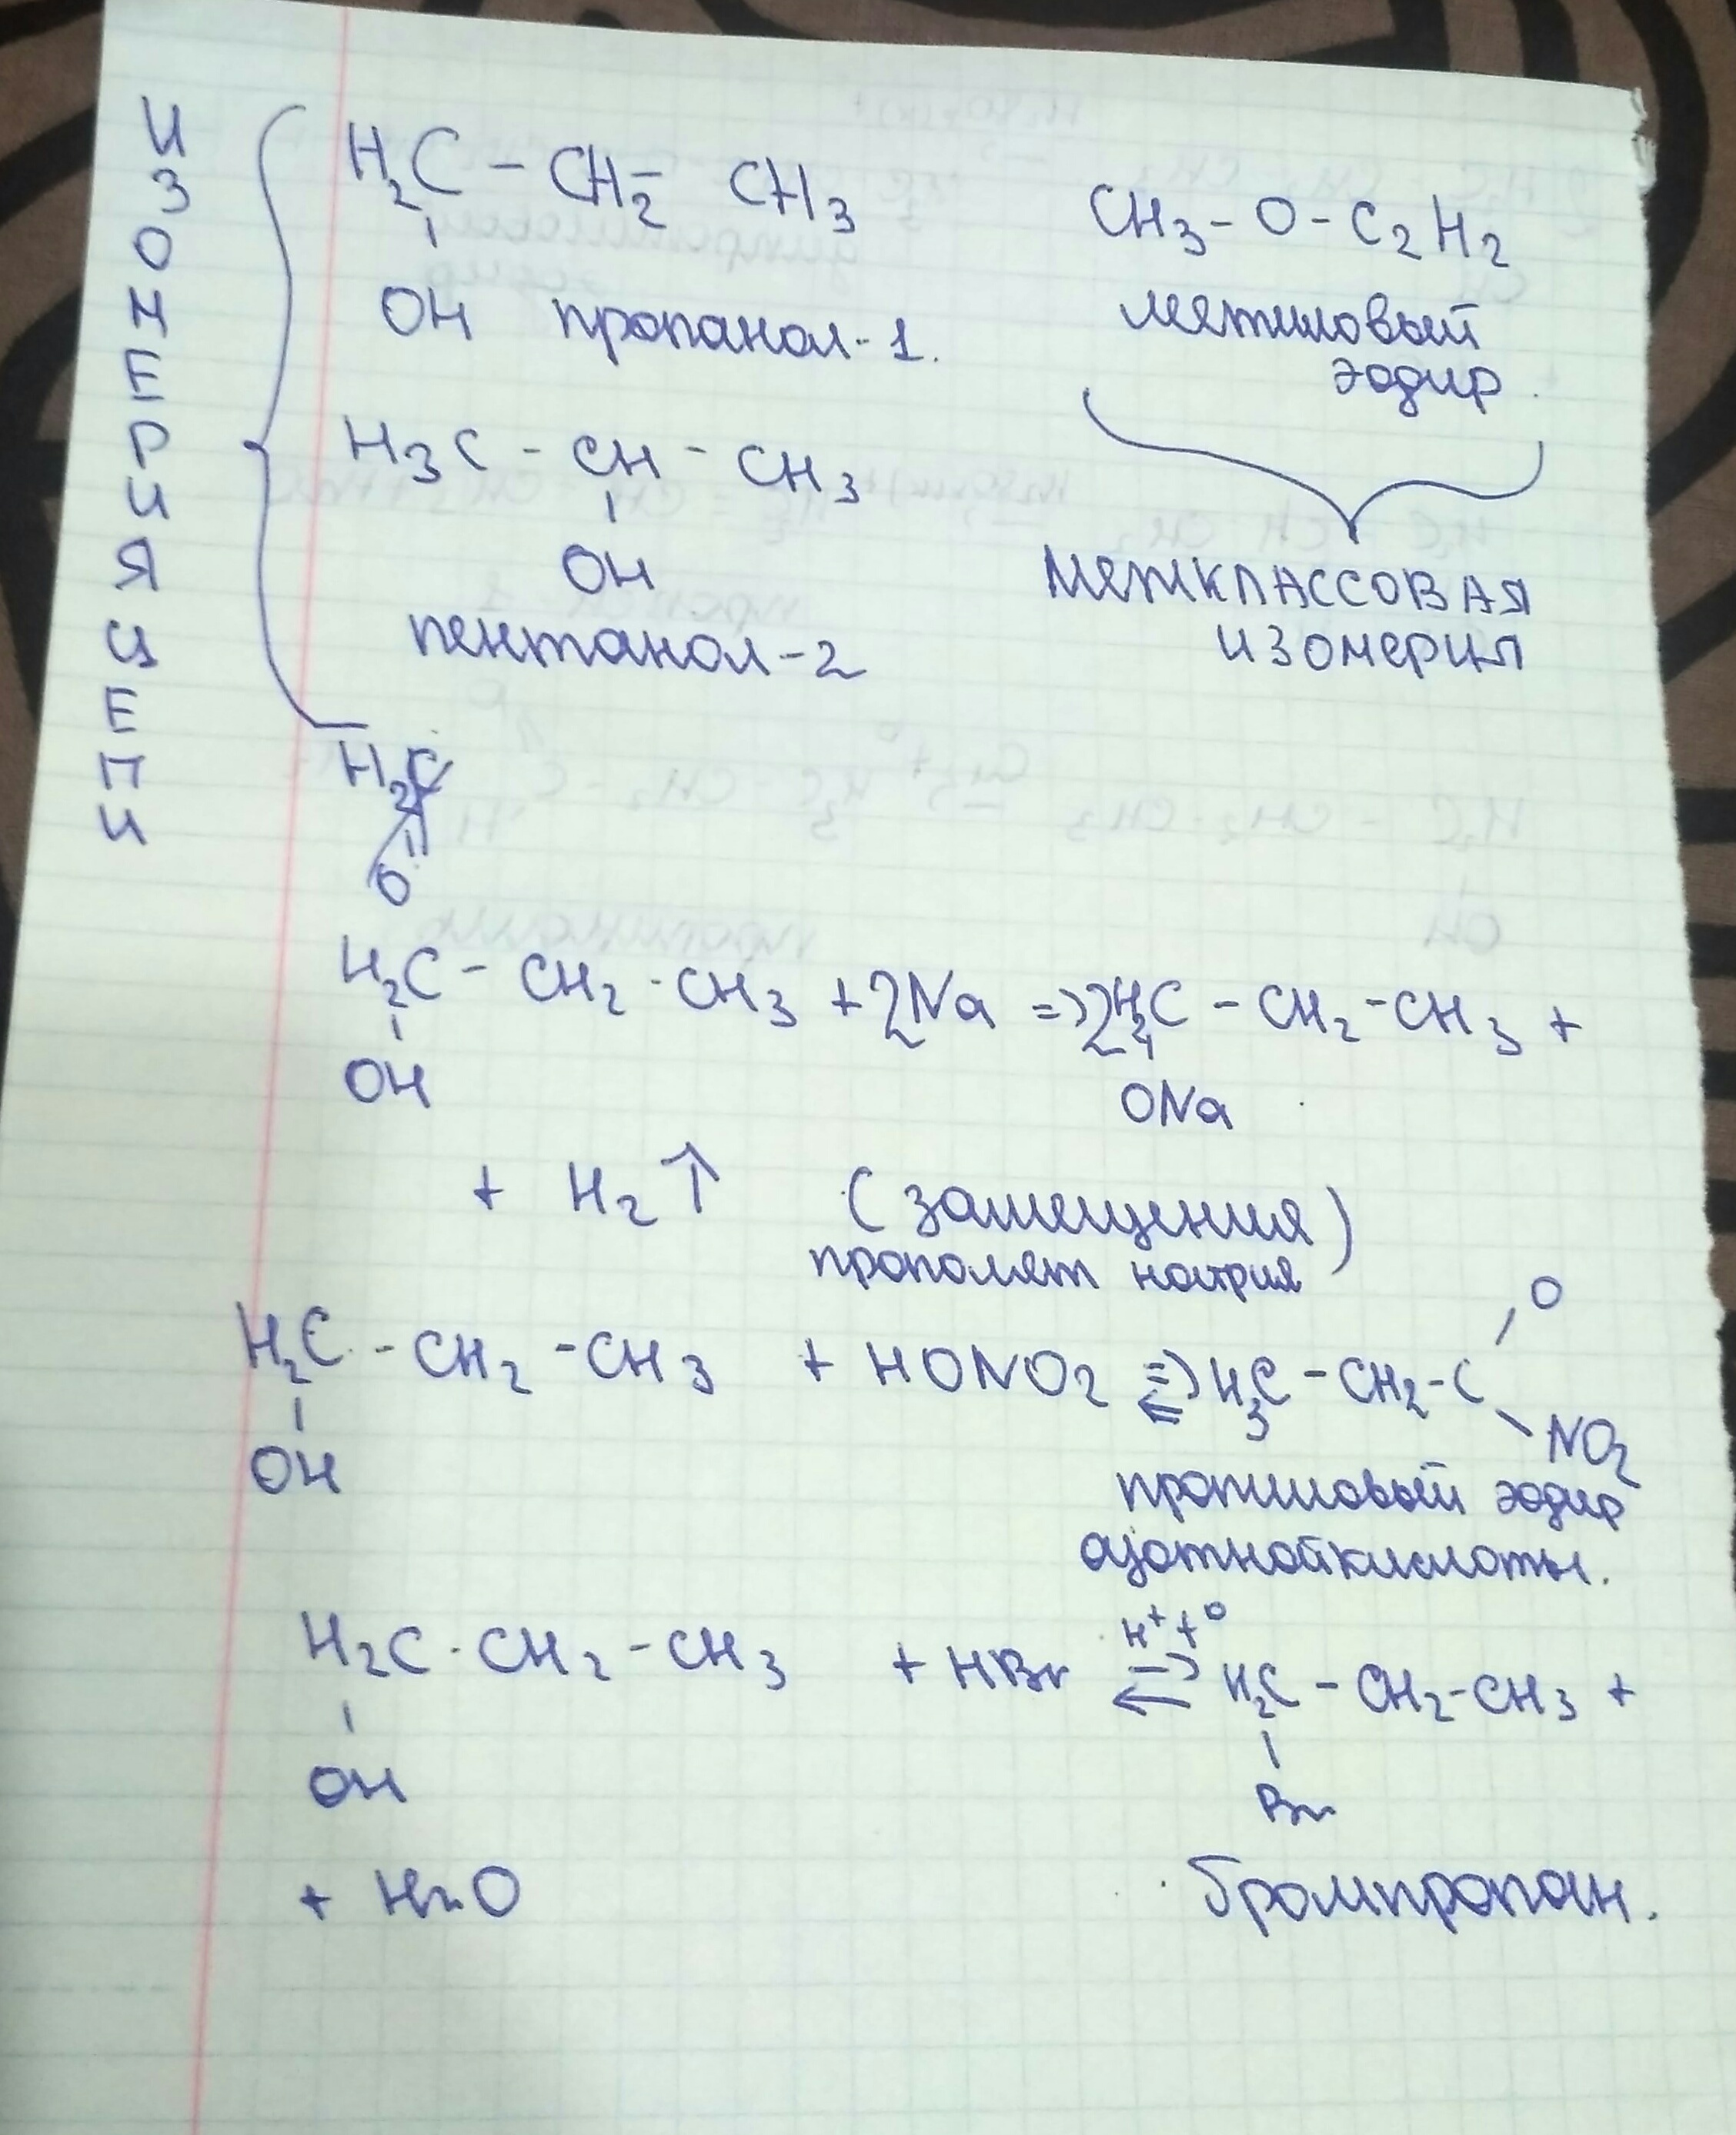 ИЗОМЕРИЯ ЦЕПИ
H2C - CH2 - CH3
OH пропанол-1.
CH3 - O - C2H2
метиловый
эфир.
H3C - CH - CH3
OH
пентанол-2
МЕЖКЛАССОВАЯ
ИЗОМЕРИЯ
H2C
O
H2C - CH2 - CH3 + 2Na => 2H2C - CH2 - CH3 +
OH
ONa
+ H2 ↑ (замещения)
натрия
O
H2C - CH2 - CH3 + HONO2 ⇄ H3C - CH2 - C
NO2
OH
пропиловый эфир
азотной кислоты.
H+ t°
H2C - CH2 - CH3 + HBr ⇄ H2C - CH2 - CH3 +
OH
Br
+ H2O
бромпропан.